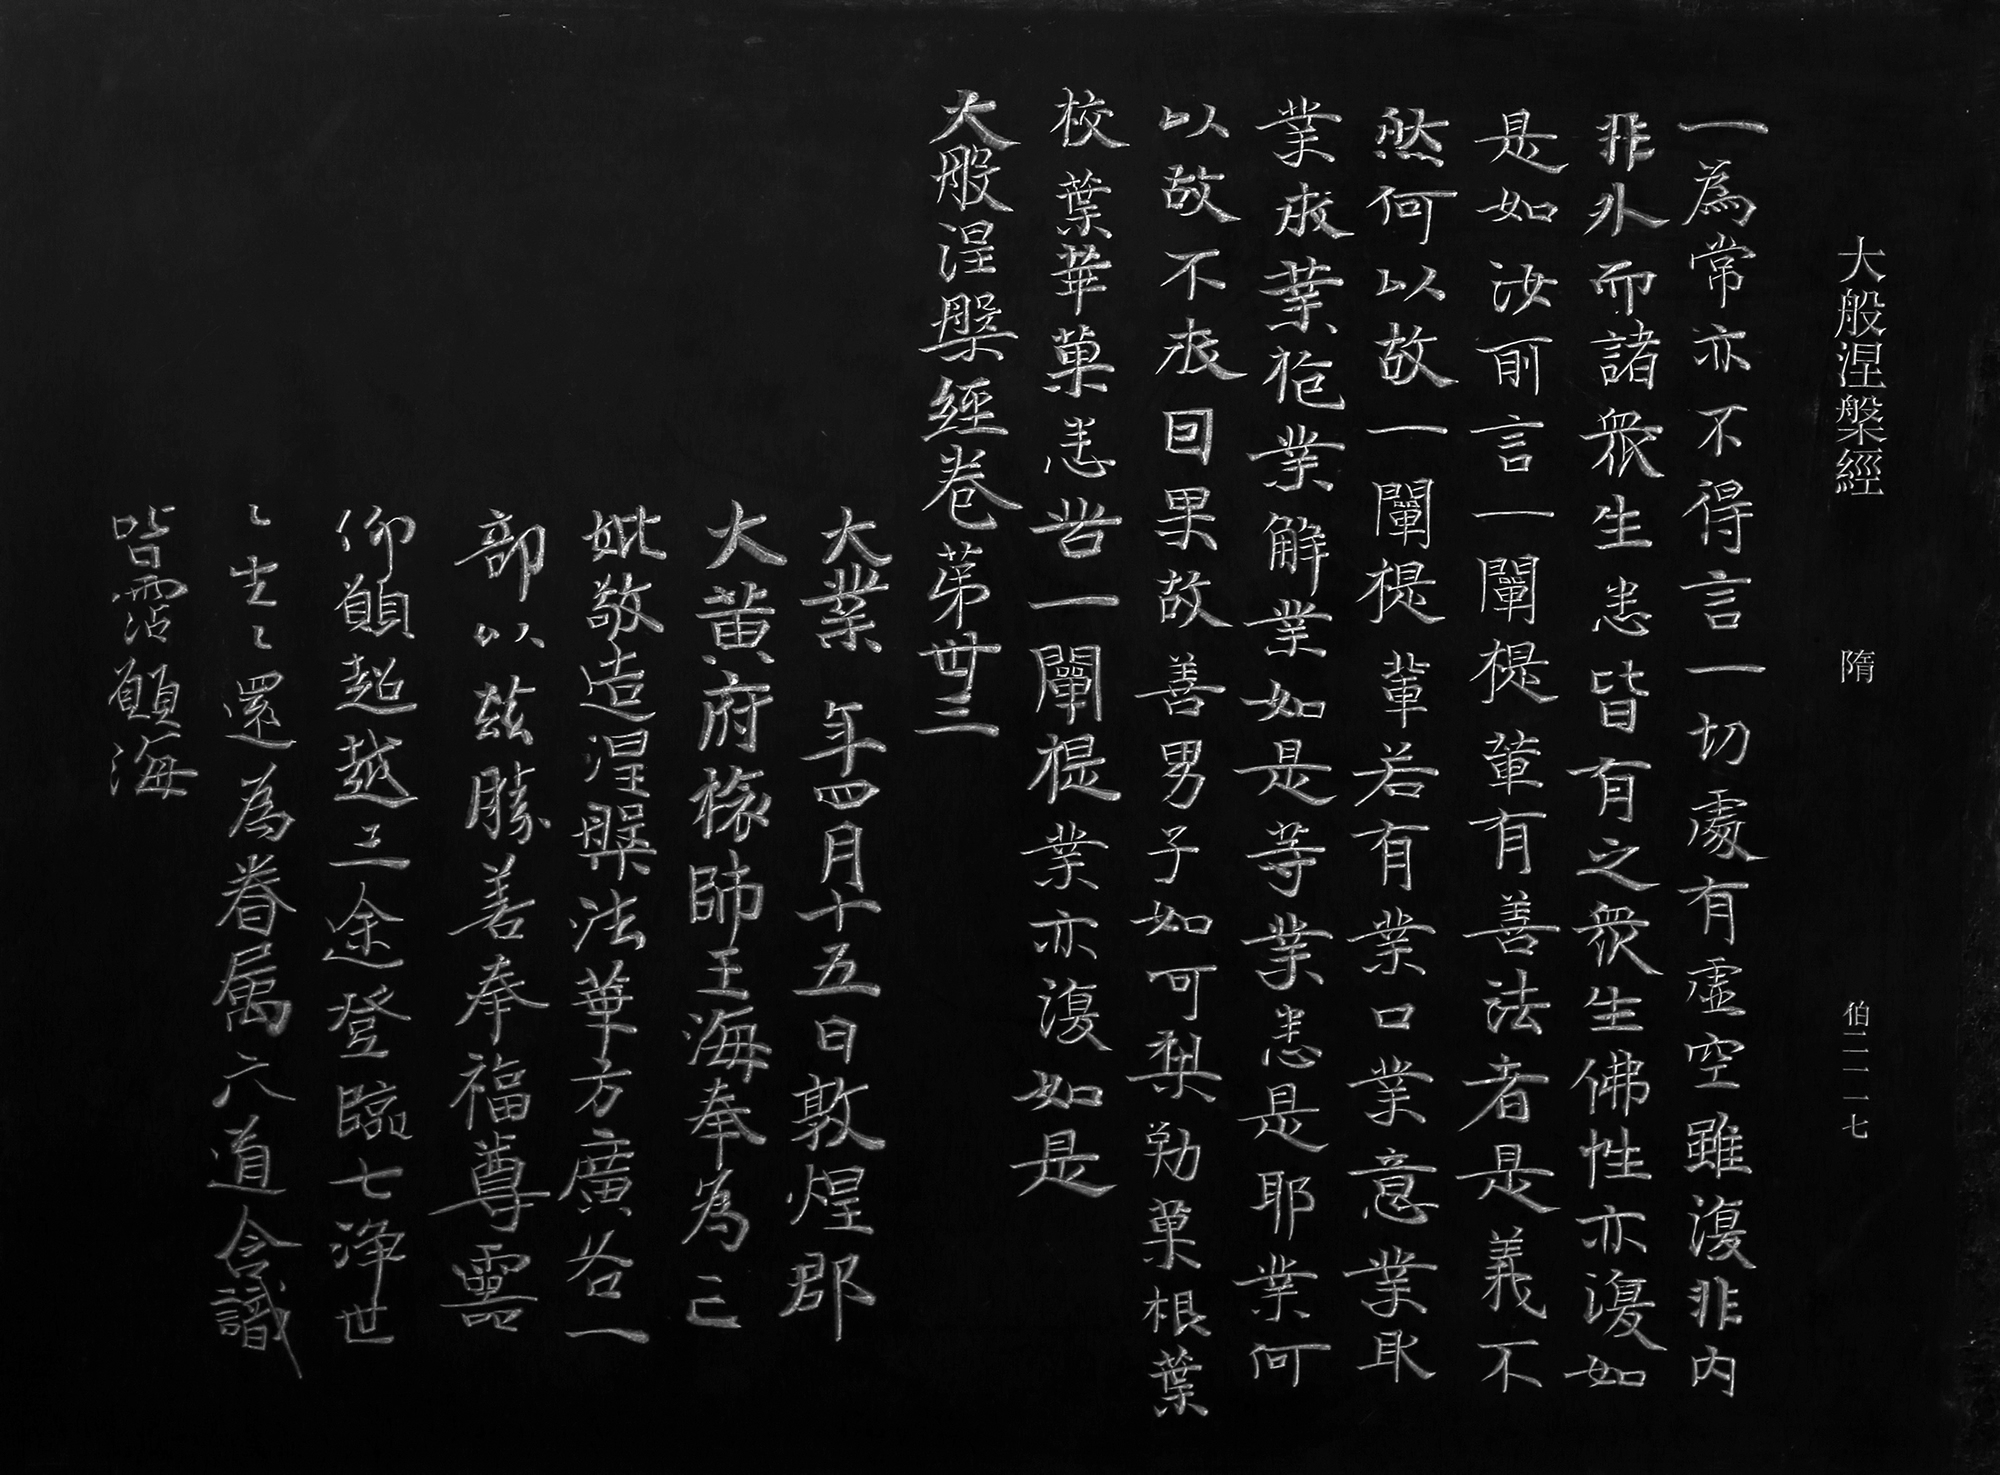 大般涅槃經 隋 伯二一一七
一為常亦不得言一切處有虛空雖復非内
非外而諸衆生悉皆有之衆生佛性亦復如
是如汝前言一闡提輩有善法者是義不
然何以故一闡提輩若有業口業意業取
業求業施業解業如是等業悉是耶業何
以故不求因果故善男子如呵梨勒菓根葉
枝葉華菓悉苦一闡提業亦復如是
大般涅槃經卷第卅三
大業 年四月十五日敦煌郡
大黄府旅師王海奉為亡
妣敬造涅槃法華方廣各一
部以兹勝善奉福尊靈
仰願超越三途登臨七淨世
〻生〻還為眷属六道含識
皆霑願海